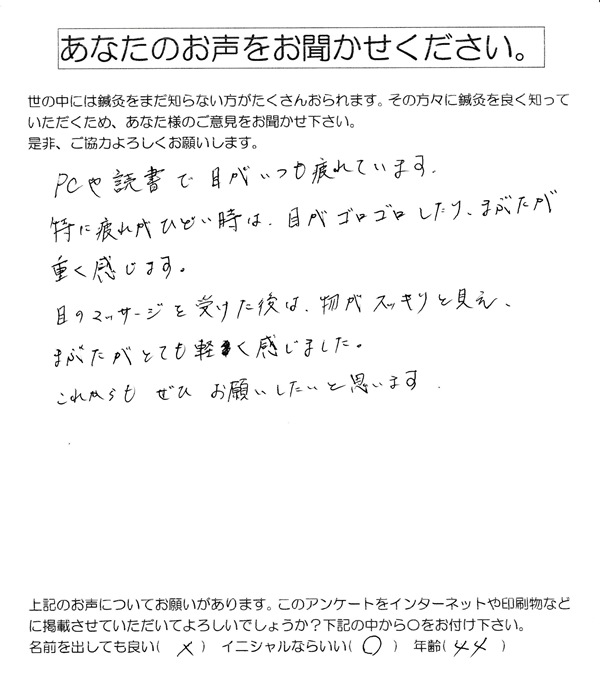 あなたのお声をお聞かせください。
世の中には鍼灸をまだ知らない方がたくさんおられます。その方々に鍼灸を良く知って
いただくため、あなた様のご意見をお聞かせ下さい。
是非、ご協力よろしくお願いします。
PCや読書で目がいつも疲れています.
特に疲れがひどい時は、目がゴロゴロしたり、まぶたが
重く感じます。
目のマッサージを受けた後は、物がスッキリと見え、
まぶたがとても軽く感じました。
これからもぜひお願いしたいと思います.
上記のお声についてお願いがあります。このアンケートをインターネットや印刷物など
に掲載させていただいてよろしいでしょうか？下記の中から○をお付け下さい。
名前を出しても良い( × ) イニシャルならいい( ○ ) 年齢( 44 )